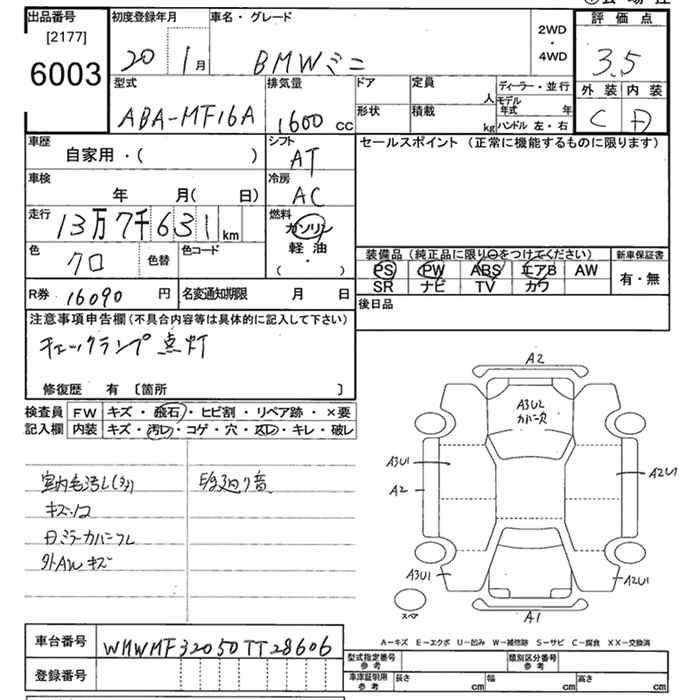 出品番号
[2177]
6003
初度登録年月
20 1月
車名・グレード
BMWミニ
2WD
・
4WD
評価点
3.5
外装 内装
C
型式
ABA-MF16A
排気量
1600 CC
ドア
定員
人
形状
積載
kg
ディーラー・並行
モデル
年式 年
ハンドル 左・右
車歴
自家用・( )
シフト
AT
セールスポイント (正常に機能するものに限ります)
車検
年 月( 日)
冷房
AC
走行
13万7千631km
燃料
ガソリン
軽油
( ・ )
色
クロ
色替
色コード
装備品 (純正品に限り○をつけてください)
PS PW ABS エアB AW
SR ナビ TV カワ
新車保証書
有・無
R券 16090 円
名変通知期限 月 日
後日品
注意事項申告欄(不具合内容等は具体的に記入して下さい)
チェックランプ点灯
修復歴 有 〔箇所 〕
検査員
記入欄
FW キズ・飛石・ヒビ割・リペア跡・×要
内装 キズ・汚レ・コゲ・穴・スレ・キレ・破レ
キズ
外AWキズ
A2
A3U2
A3U1
A2
A2U1
A3U1
A2U1
スペア
A1
A-キズ E-エクボ U-凹み W-補修跡 S-サビ C-腐食 XX-交換済
車台番号
WMWMF32050TT28606
登録番号
型式指定番号
参考
類別区分番号
参考
車庫証明用
参考
長さ cm
幅 cm
高さ cm